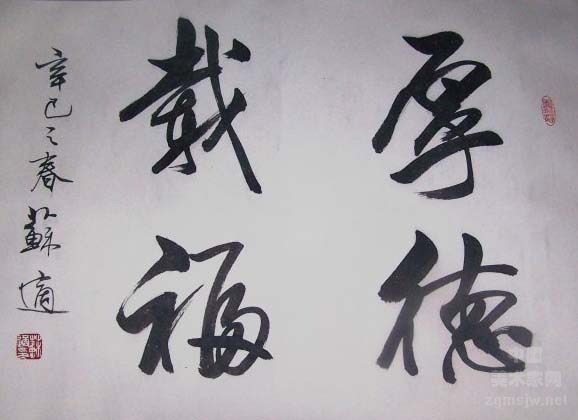 厚德
載福
辛巳之春蘇適
中国
美术家网
zgmsjw.net